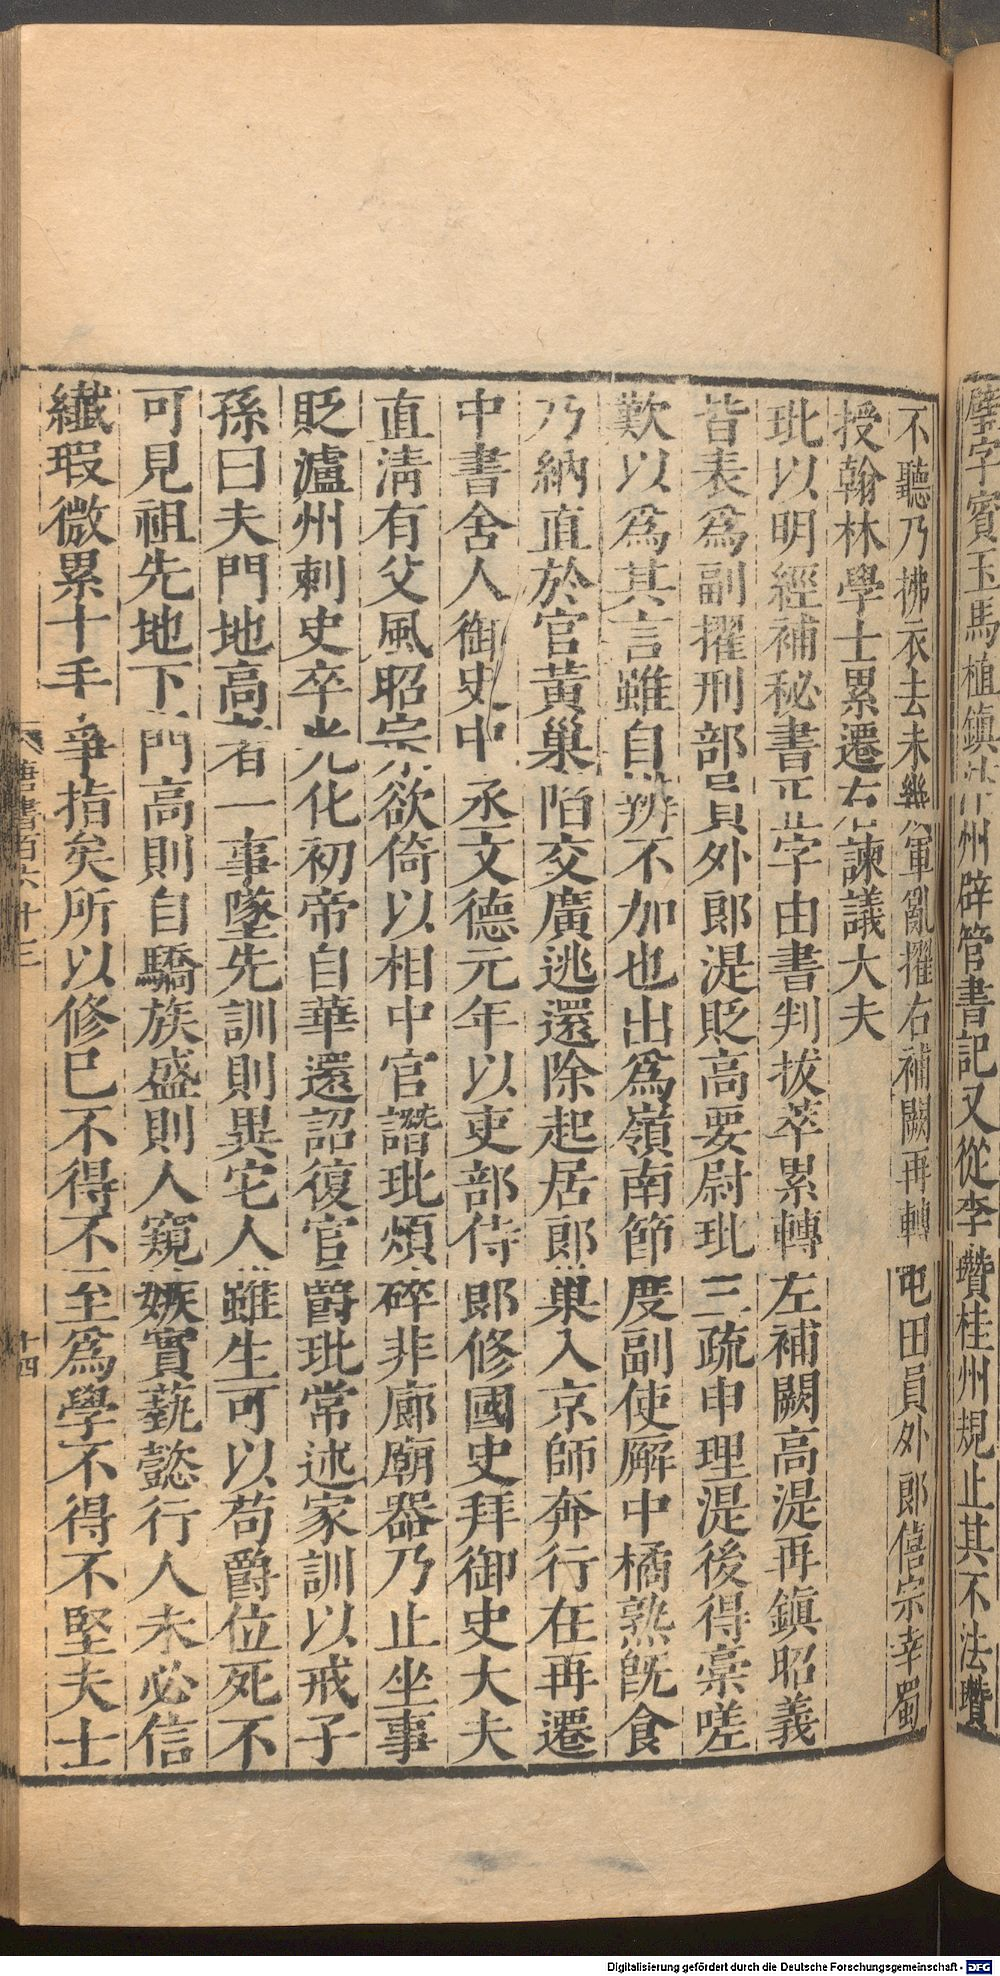 璧字賓玉馬植鎮汴州辟管書記又從李瓚桂州規止其不法瓚
不聽乃拂衣去未幾軍亂擢右補闕再轉屯田員外郎僖宗幸蜀
授翰林學士累遷右諫議大夫
玭以明經補秘書正字由書判拔萃累轉左補闕高湜再鎮昭義
皆表爲副擢刑部員外郎湜貶高要尉玭三疏申理湜後得稾嗟
歎以爲其言雖自辨不加也出爲嶺南節度副使廨中橘熟旣食
乃納直於官黃巢陷交廣逃還除起居郎巢入京師奔行在再遷
中書舍人御史中丞文德元年以吏部侍郎修國史拜御史大夫
直淸有父風昭宗欲倚以相中官譖玭煩碎非廊廟器乃止坐事
貶瀘州刺史卒光化初帝自華還詔復官爵玭常述家訓以戒子
孫曰夫門地高者一事墜先訓則異它人雖生可以苟爵位死不
可見祖先地下門高則自驕族盛則人窺嫉實蓺懿行人未必信
纎瑕微累十手爭指矣所以修己不得不至爲學不得不堅夫士
唐書百六十三
十四
Digitalisierung gefördert durch die Deutsche Forschungsgemeinschaft - DFG